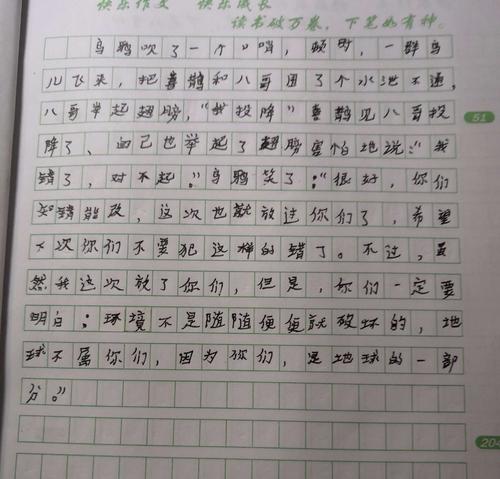 快乐作文 快乐成长
读书破万卷，下笔如有神。
乌鸦吹了一个口哨，顿时，一群鸟
儿飞来，把喜鹊和八哥围了个水泄不通，
八哥举起翅膀，“我投降”喜鹊见八哥投
降了、自己也举起了翅膀害怕地说：“我
错了，对不起。”乌鸦笑了：“很好，你们
知错能改，这次也就放过你们了，希望
下次你们不要犯这样的错了。不过，虽
然我这次放了你们，但是，你们一定要
明白：环境不是随随便便就破坏的，地
球不属你们，因为你们，是地球的一部
分。”
51
204